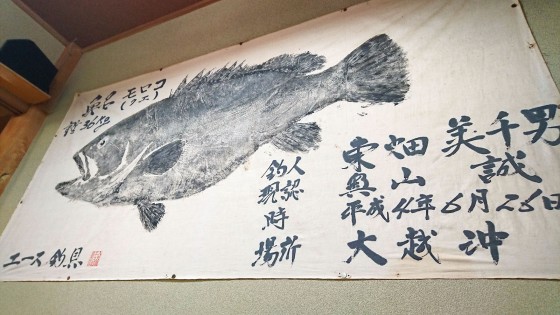 モロコ
(クエ)
釣人 東畑美千男
現認 山誠
時 平成4年6月26日
場所 大越沖
エース釣具